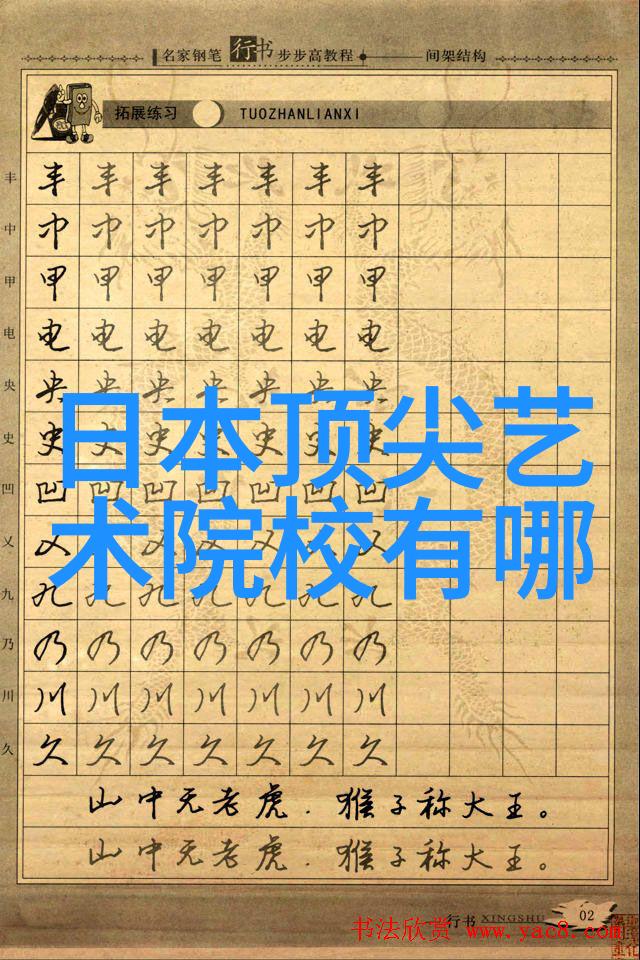 名家钢笔行书步步高教程 间架结构
拓展练习 TUOZHANLIANXI
丰 丰 丰 丰 丰 丰 丰 丰
中 中 中 中 中 中 中 中
甲 甲 甲 甲 甲 甲 甲 甲
电 电 电 电 电 电 电 电
央 央 央 央 央 央 央 央
日本顶尖艺
史 史 史 史 史 史 史 史
凹 凹 凹 凹 凹 凹 凹 凹
术院校有哪
乂 乂 乂 乂 乂 乂 乂
九 九 九 九 九 九 九 九
乃 乃 乃 乃 乃 乃 乃 乃
川 川 川 川 川 川 川 川
久 久 久 久 久 久 久 久
山中无老虎．猴子称大王。
山中无老虎．猴子称大王。
行书 XINGSHU 02
书法欣赏 www.yac8.com